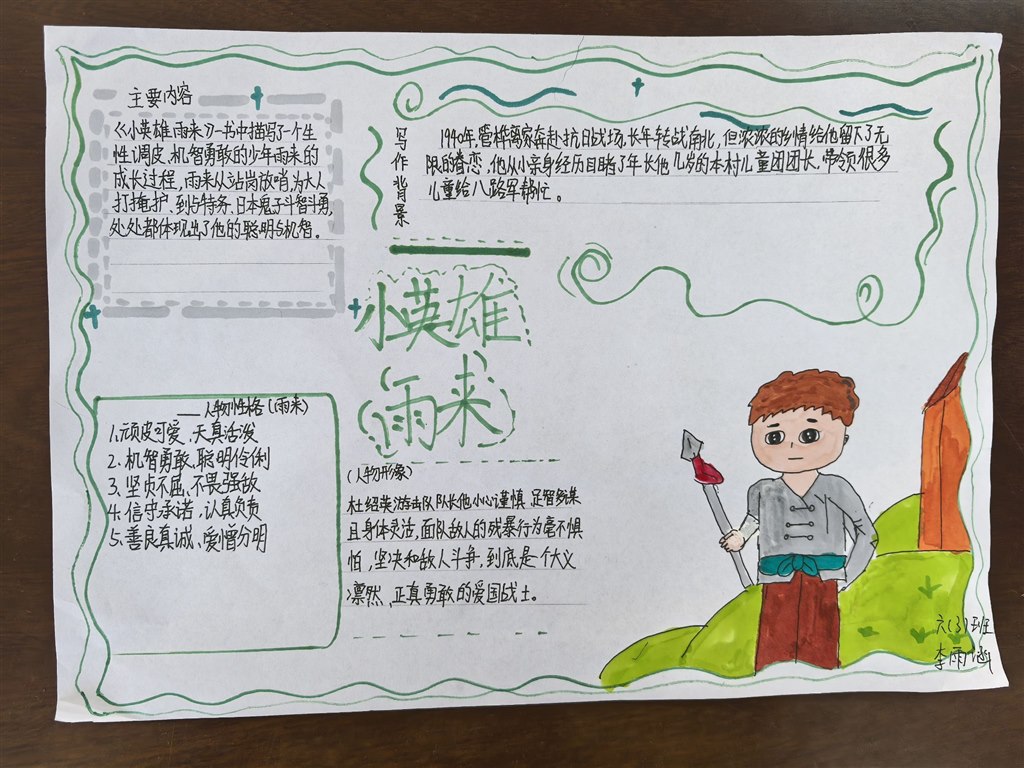 主要内容
《小英雄雨来》一书中描写了一个生
性调皮、机智勇敢的少年雨来的
成长过程,雨来从站岗放哨,为大人
打掩护、到与特务、日本鬼子斗智斗勇,
处处都体现出了他的聪明与机智。
写作背景
1940年,管桦离家奔赴抗日战场,长年转战南北,但浓浓的乡情给他留下了无
限的眷恋,他从小亲身经历目睹了年长他几岁的本村儿童团团长,带领很多
儿童给八路军帮忙。
小英雄
雨来
——人物性格(雨来)
1.顽皮可爱、天真活泼
2.机智勇敢、聪明伶俐
3.坚贞不屈、不畏强敌
4.信守承诺、认真负责
5.善良真诚、爱憎分明
(人物形象)
杜绍英游击队队长他小心谨慎,足智多谋
且身体灵活,面队敌人的残暴行为毫不惧
怕,坚决和敌人斗争,到底是一个大义
凛然、正真勇敢的爱国战士。
六(3)班
李雨涵